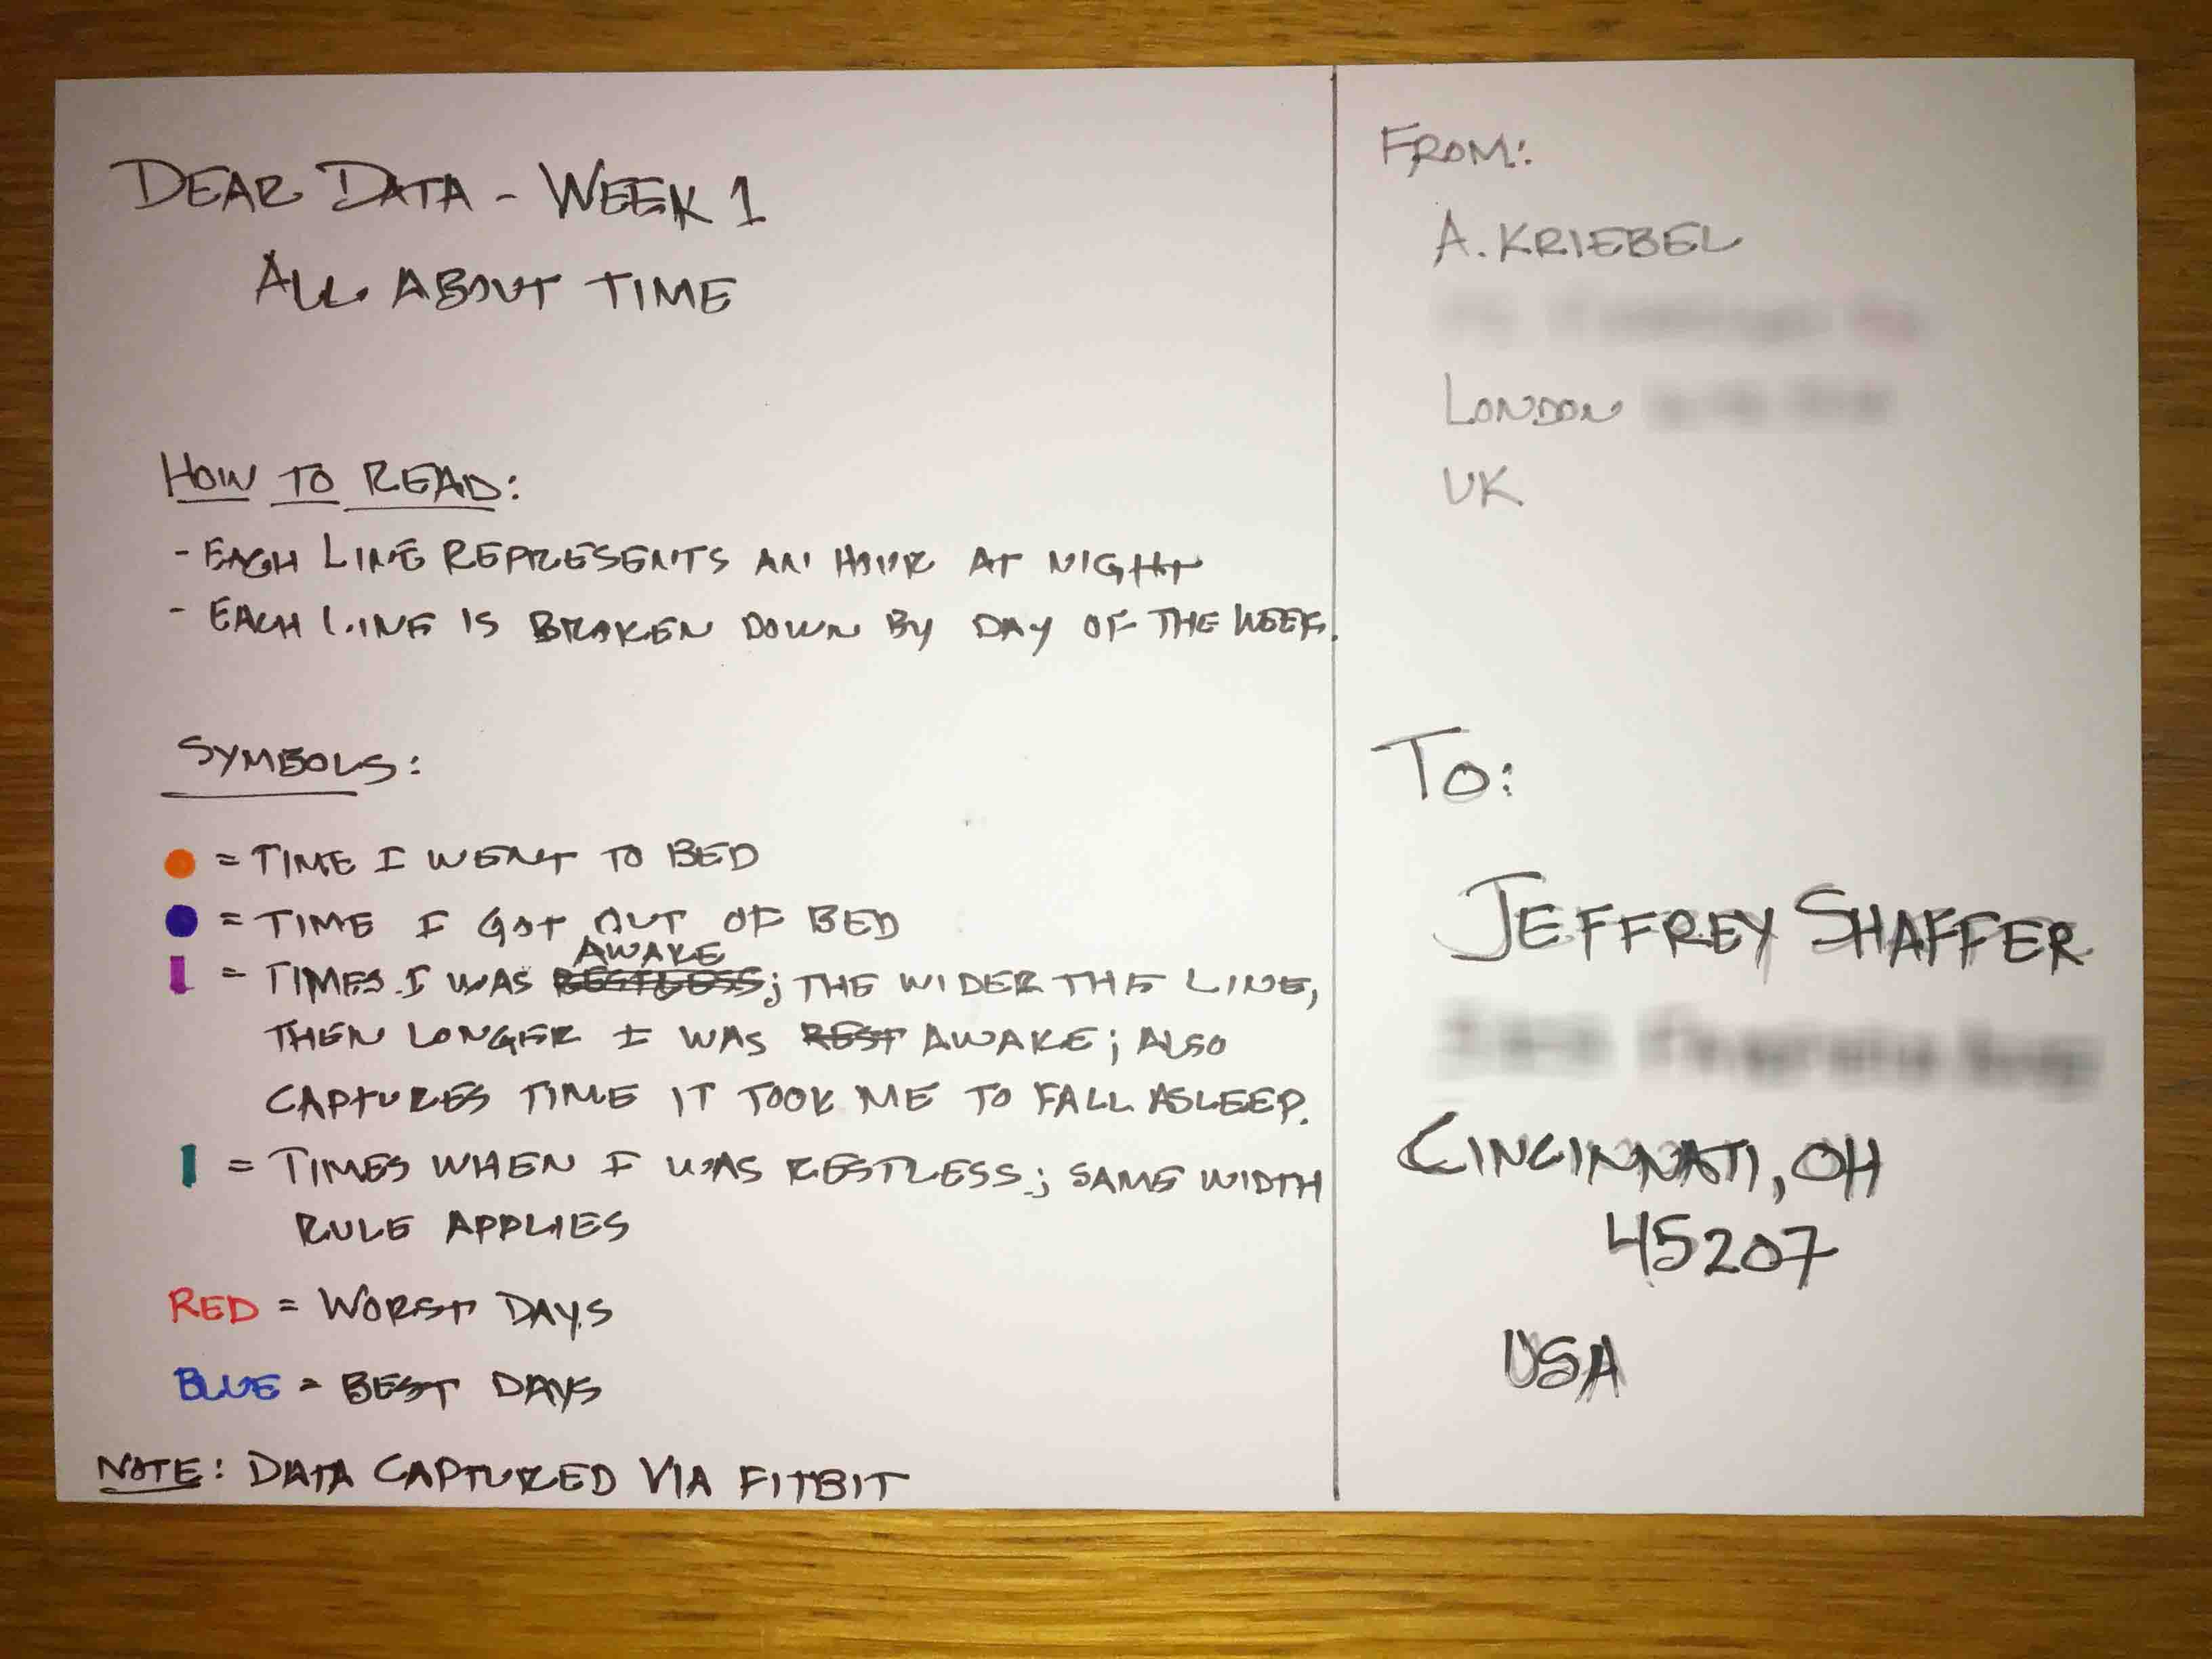 DEAR DATA - WEEK 1
ALL ABOUT TIME
HOW TO READ:
- EACH LINE REPRESENTS AN HOUR AT NIGHT
- EACH LINE IS BROKEN DOWN BY DAY OF THE WEEK.
SYMBOLS:
= TIME I WENT TO BED
= TIME I GOT OUT OF BED
AWAKE
= TIMES I WAS RESTLESS; THE WIDER THE LINE,
THEN LONGER I WAS REST AWAKE; ALSO
CAPTURES TIME IT TOOK ME TO FALL ASLEEP.
= TIMES WHEN I WAS RESTLESS; SAME WIDTH
RULE APPLIES
RED = WORST DAYS
BLUE = BEST DAYS
NOTE: DATA CAPTURED VIA FITBIT
FROM:
A. KRIEBEL
LONDON
UK
TO:
JEFFREY SHAFFER
CINCINNATI, OH
45207
USA